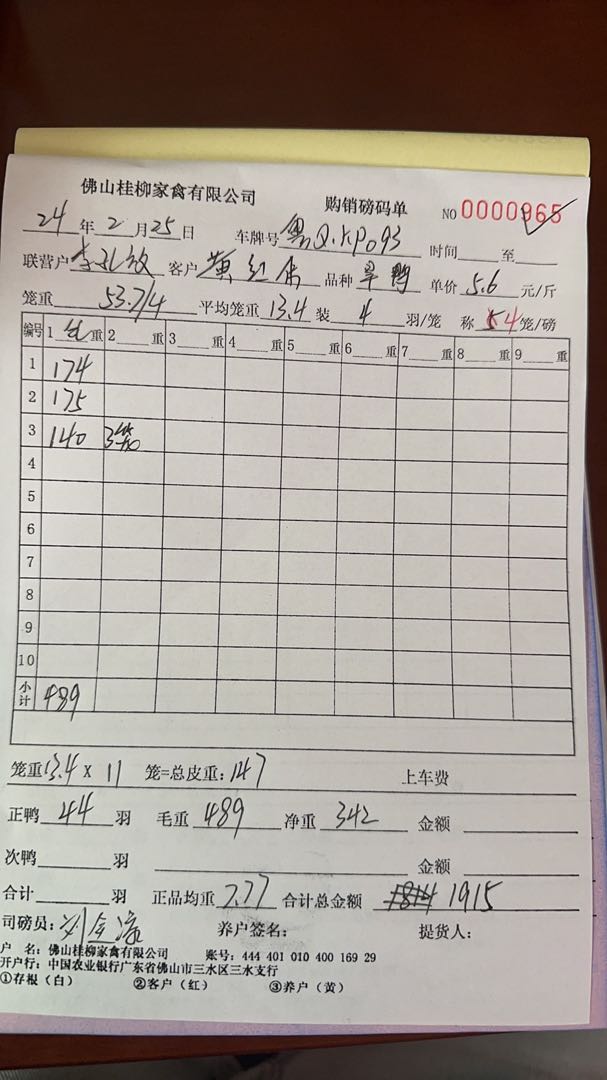 佛山桂柳家禽有限公司 购销磅码单 NO 0000965
24 年 2 月 25 日 车牌号 粤Q.KP093 时间 至
联营户 李孔放 客户 黄红 品种 旱鸭 单价 5.6 元/斤
笼重 53.7/4 平均笼重 13.4 装 4 羽/笼 称 4 笼/磅
编号 1 重 2 重 3 重 4 重 5 重 6 重 7 重 8 重 9 重
1 174
2 175
3 140 3笼
4
5
6
7
8
9
10
小计 489
笼重 13.4 X 11 笼=总皮重: 147 上车费
正鸭 44 羽 毛重 489 净重 342 金额
次鸭 羽 金额
合计 羽 正品均重 7.77 合计总金额 1814 1915
司磅员: 刘金 养户签名: 提货人:
户 名: 佛山桂柳家禽有限公司 账号: 444 401 010 400 169 29
开户行: 中国农业银行广东省佛山市三水区三水支行
①存根(白) ②客户(红) ③养户(黄)